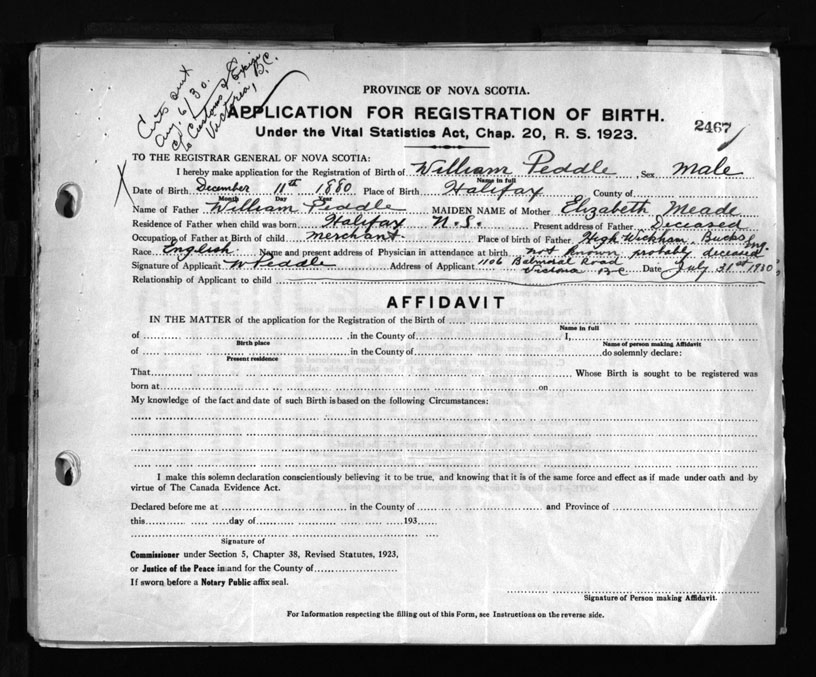 Certs sent
Aug. 6/30.
c/o Customs & Excise
Victoria, B.C.
PROVINCE OF NOVA SCOTIA.
APPLICATION FOR REGISTRATION OF BIRTH.
2467
Under the Vital Statistics Act, Chap. 20, R. S. 1923.
TO THE REGISTRAR GENERAL OF NOVA SCOTIA:
I hereby make application for the Registration of Birth of William Peddle Sex Male
Name in full
Date of Birth December 11th 1880 Place of Birth Halifax County of
Month Day Year
Name of Father William Peddle MAIDEN NAME of Mother Elizabeth Meade
Residence of Father when child was born Halifax N.S. Present address of Father Deceased
Occupation of Father at Birth of child merchant Place of birth of Father High Wickham, Bucks Eng.
Race English Name and present address of Physician in attendance at birth not known probably deceased
Signature of Applicant W Peddle Address of Applicant 1106 Balmoral Road Victoria B.C Date July 31st 1930
Relationship of Applicant to child
AFFIDAVIT
IN THE MATTER of the application for the Registration of the Birth of
Name in full
of in the County of I,
Birth place Name of person making Affidavit
of in the County of do solemnly declare:
Present residence
That Whose Birth is sought to be registered was
born at on
My knowledge of the fact and date of such Birth is based on the following Circumstances:
I make this solemn declaration conscientiously believing it to be true, and knowing that it is of the same force and effect as if made under oath and by
virtue of The Canada Evidence Act.
Declared before me at in the County of and Province of
this day of 193
Signature of
Commissioner under Section 5, Chapter 38, Revised Statutes, 1923,
or Justice of the Peace in and for the County of
If sworn before a Notary Public affix seal.
Signature of Person making Affidavit.
For Information respecting the filling out of this Form, see Instructions on the reverse side.